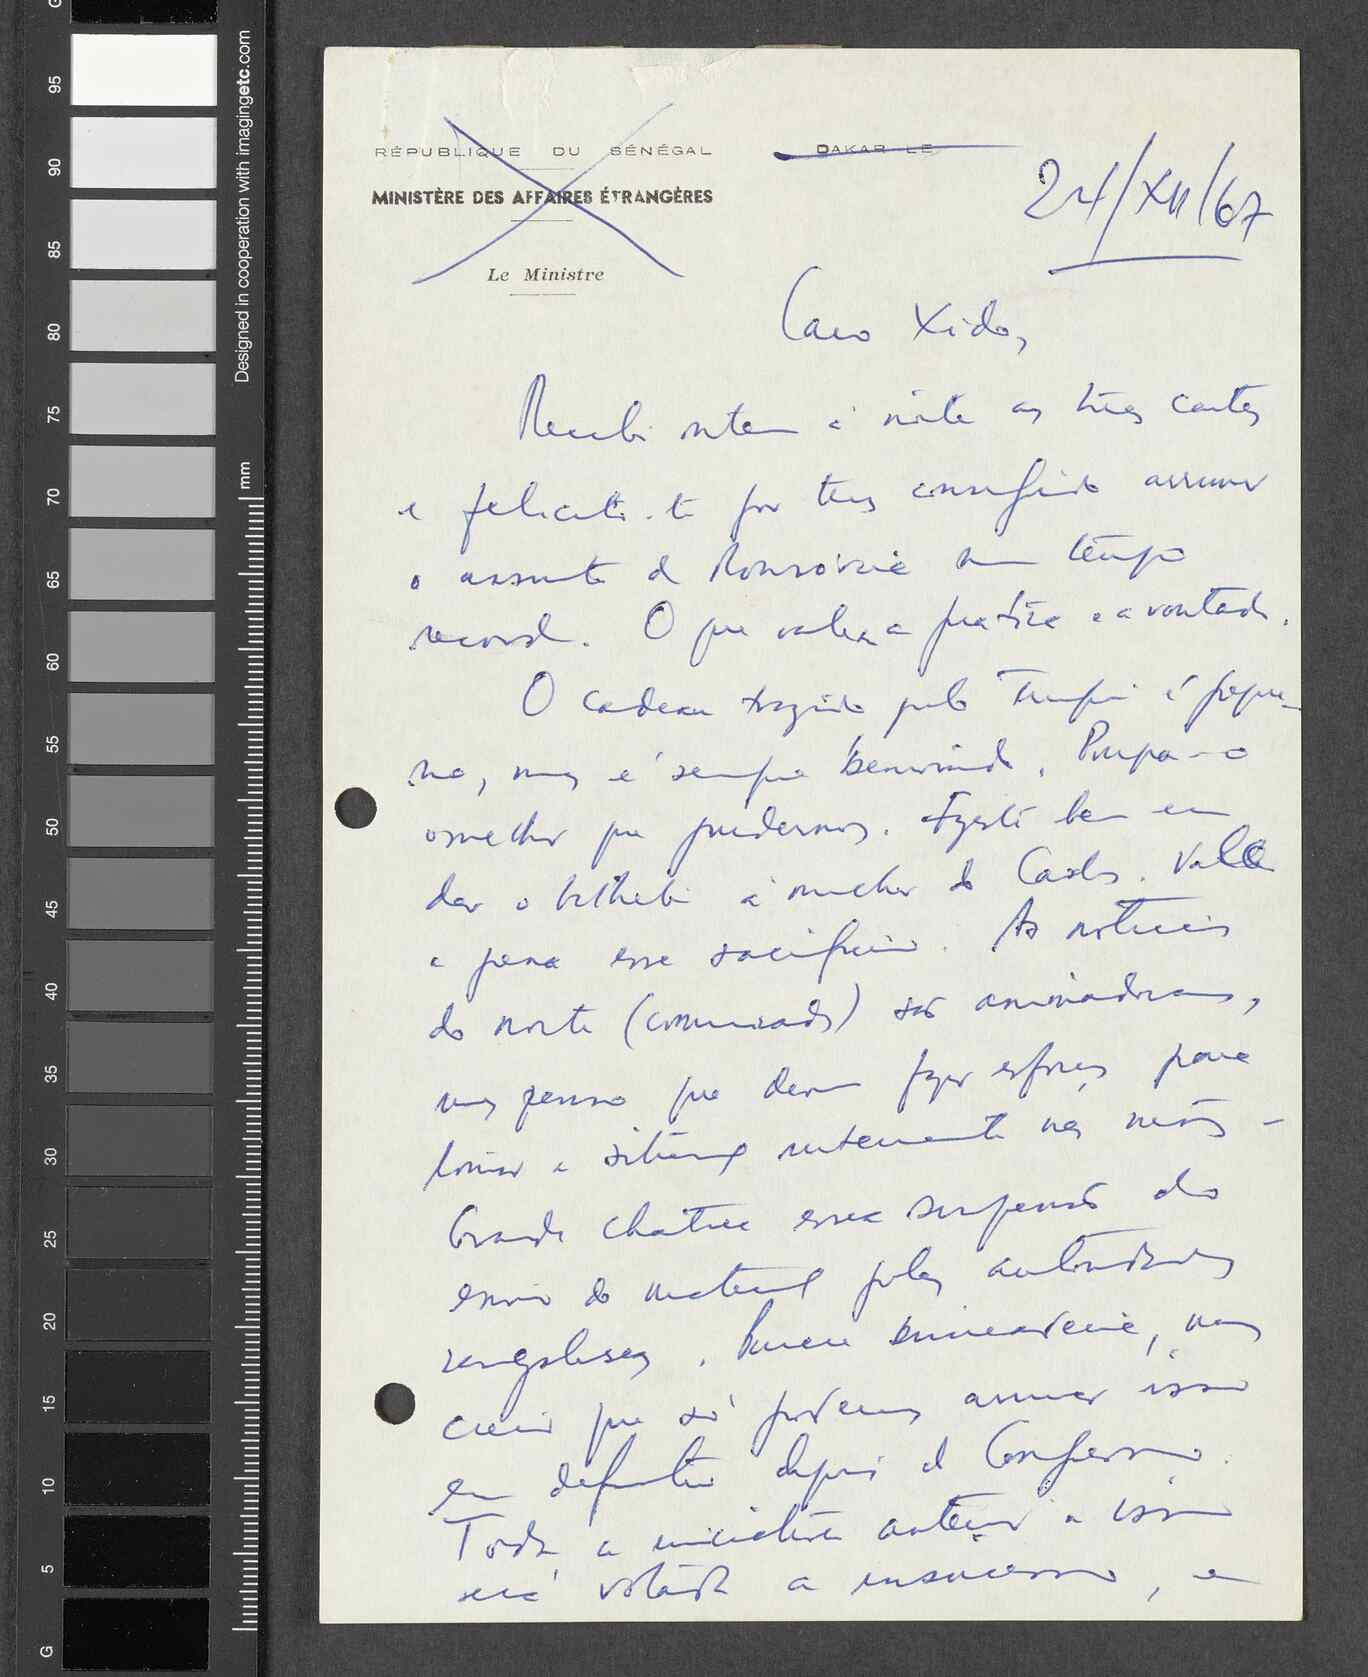 RÉPUBLIQUE DU SÉNÉGAL
DAKAR LE
MINISTÈRE DES AFFAIRES ÉTRANGÈRES
Le Ministre
24/XII/67
Caro Xido,
Recebi ontem à noite as três cartas
e felicito-te por teres conseguido arrumar
o assunto de Monróvia num tempo
record. O que valeu a prática e a vontade.
O cadeau trazido pelo é peque-
no, mas é sempre benvindo. Poupa-o
o melhor que pudermos. Fizeste bem em
dar o bilhete à mulher do Carlos. Vale
a pena esse sacrifício. As notícias
do norte (comunicado) são animadoras,
mas penso que devem fazer esforços para
tomar a nas mãos -
Grande chatice essa suspensão do
envio do material pelas autoridades
senegalesas. , mas
creio que só podemos arrumar isso
em definitivo depois de
Toda a iniciativa anterior a isso
será votada a insucesso, e
Designed in cooperation with imagingetc.com
mm
95
90
85
80
75
70
65
60
55
50
45
40
35
30
25
20
15
10
5
G